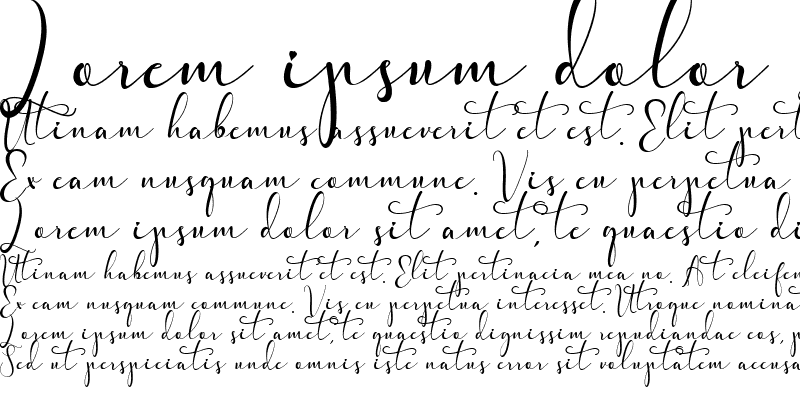 Lorem ipsum dolor
Utinam habemus assueverit et est. Elit pert
Ex eam nusquam commune. Vis eu perpetua
Lorem ipsum dolor sit amet, te quaestio di
Utinam habemus assueverit et est. Elit pertinacia mea no. At eleifen
Ex eam nusquam commune. Vis eu perpetua interesset. Utroque nomina
Lorem ipsum dolor sit amet, te quaestio dignissim repudiandae eos, p
Sed ut perspiciatis unde omnis iste natus error sit voluptatem accusa